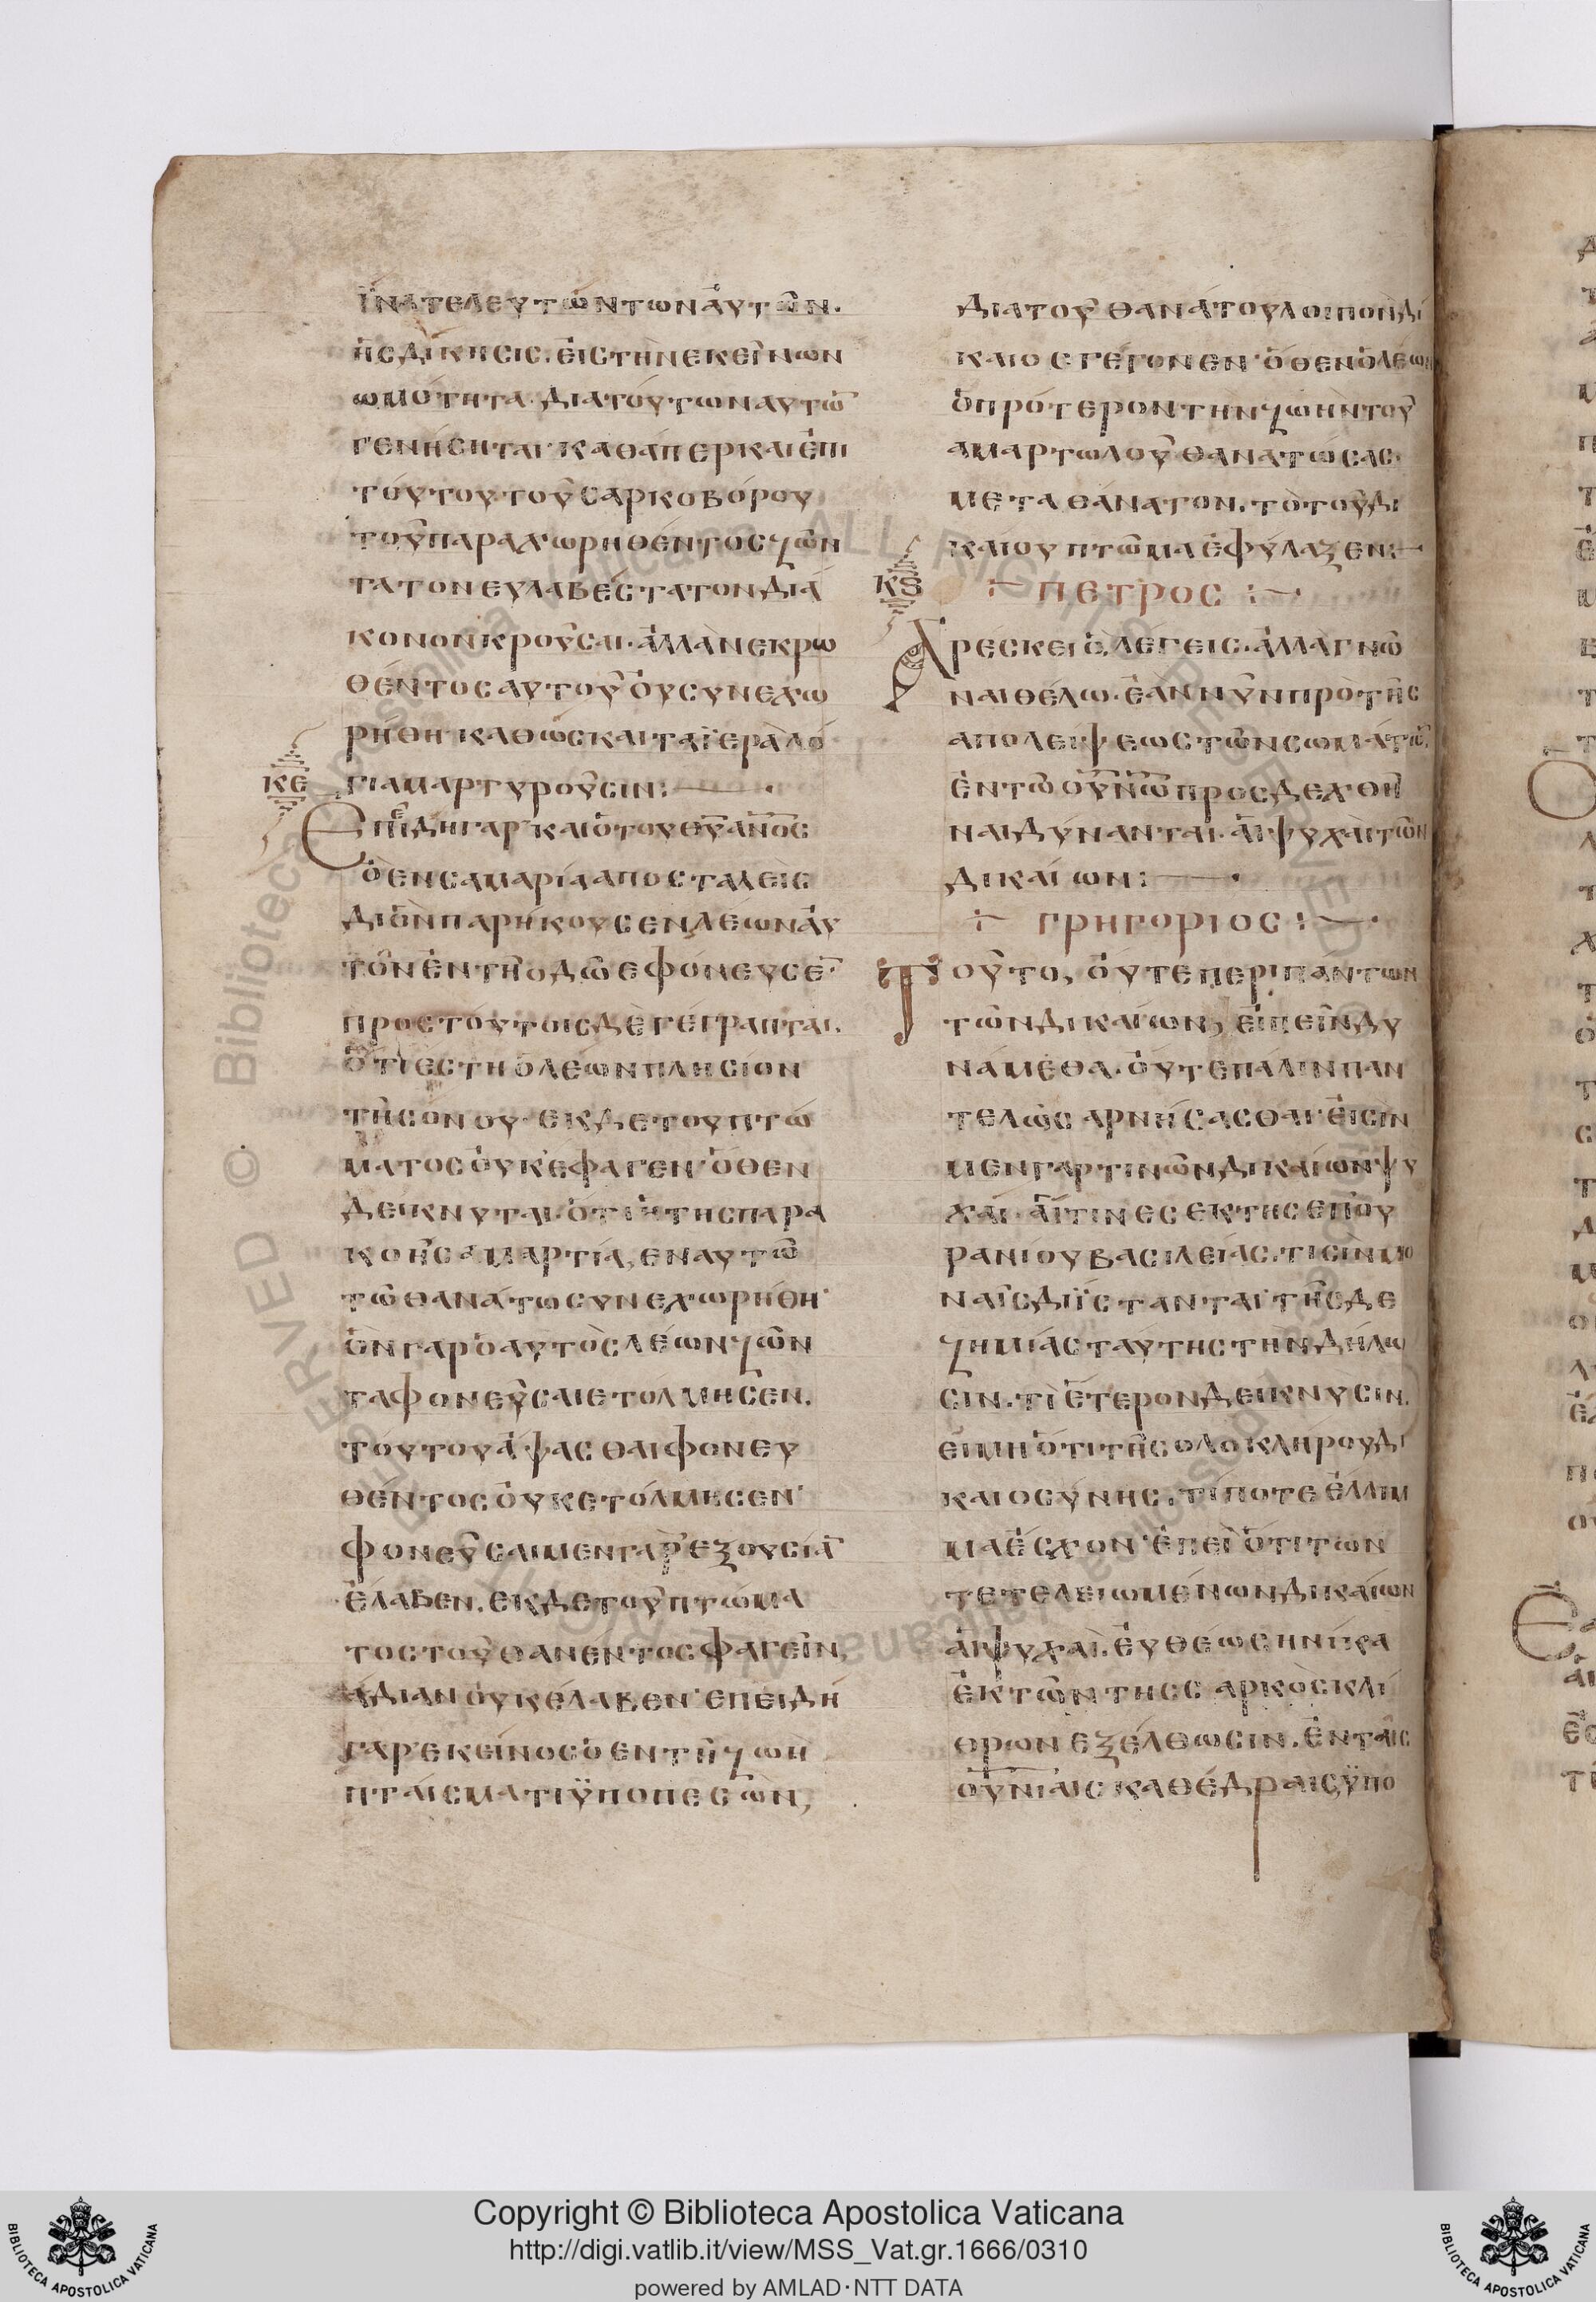 ἵνα τελευτώντων αὐτῶν.
ἡ ἐκδίκησις. εἰς τὴν ἐκείνων
ὠμότητα διὰ τούτων αυτῶ
γενήσηται· καθάπερ και ἐπι
τούτου τοῦ σαρκοβόρου
τοῦ παραχωρηθέντος ζῶν
τα τον ευλαβέστατον διά
κονον κροῦσαι· ἀλλὰ νεκρω
θέντος αυτοῦ ὀυ συνεχω
ρήθη· καθὼς και τα ϊερὰ λό
ΚΕ
για μαρτυροῦσιν:
Επειδὴ γαρ και ὁ του θυ ανος
ὁ ἐν σαμαρία αποσταλεὶς
διὸν παρήκουσεν λέων ἀυ
τὸν ἐν τῆ οδῶ εφόνευσε·
προς τούτοις δὲ γέγραπται.
ὅτι ἐστη ὁ λέων πλησίον
τῆς όνου· εκ δε του πτώ
ματος ὀυκ έφαγεν· ὅθεν
δείκνυται· ὅτι ἡ της παρα
κοῆς αμαρτία, εν αυτῶ
τῶ θανάτω συνεχωρήθη·
ὃν γαρ ὁ αυτὸς λέων ζῶν
τα φονεῦσαι ετόλμησεν.
τούτου ἁψασθαι φονευ
θέντος ὀυκ ετόλμησεν·
φονεῦσαι μεν γαρ εξουσίαν
ἔλαβεν. εκ δε τοῦ πτώμα
τος τοῦ θανέντος φαγεῖν,
άδιαν ὀυκ έλαβεν· ἐπειδὴ
γαρ εκείνος ὁ εν τῆ ζωῆ
πταίσματι ϋποπεσὼν,
δια τοῦ θανάτου λοιπὸν δί
καιος γέγονεν· ὅθεν ὁ λέων
ὁ πρότερον την ζωὴν τοῦ
αμαρτωλοῦ θανατώσας·
μετα θάνατον. τὸ τοῦ δι
καίου πτῶμα ἐφύλαξεν:
Κϛ
ΠΕΤΡΟΣ :
Αρέσκει ὃ λέγεις· ἀλλὰ γνῶ
ναι θέλω· ἐὰν νῦν πρὸ τῆς
απολείψεως τῶν σωμάτω.
ἐν τῶ ουνω προσδεχθῆ
ναι δύνανται. ἁι ψυχὰι τῶν
δικαίων:
ΓΡΗΓΟΡΙΟΣ :
Τοῦτο, ὀυτε περι πάντων
τῶν δικαίων, εἰπεῖν δυ
νάμεθα. ὀυτε πάλιν παν
τελῶς αρνήσασθαι· ἐισὶν
μεν γαρ τινῶν δικαίων ψυ
χαί· ἁίτινες εκ της επου
ρανίου βασιλείας. τισὶν μο
ναῖς διΐστανται· τῆς δε
ζημίας ταύτης την δήλω
σιν. τί ἕτερον δείκνυσιν.
ει μη ὅτι τῆς ολοκλήρου δι
καιοσύνης. τί ποτε ἔλλιμ
μα ἔσχον· ἐπεὶ ὅτι τῶν
τετελειωμένων δικαίων
ἁι ψυχαὶ. ἐυθέως ηνίκα
ἐκ τῶν της σαρκὸς κλί
θρων εξέλθωσιν. ἐν ταῖς
ουνίαις καθέδραις ϋπο
Copyright © Biblioteca Apostolica Vaticana
http://digi.vatlib.it/view/MSS_Vat.gr.1666/0310
powered by AMLAD·NTT DATA